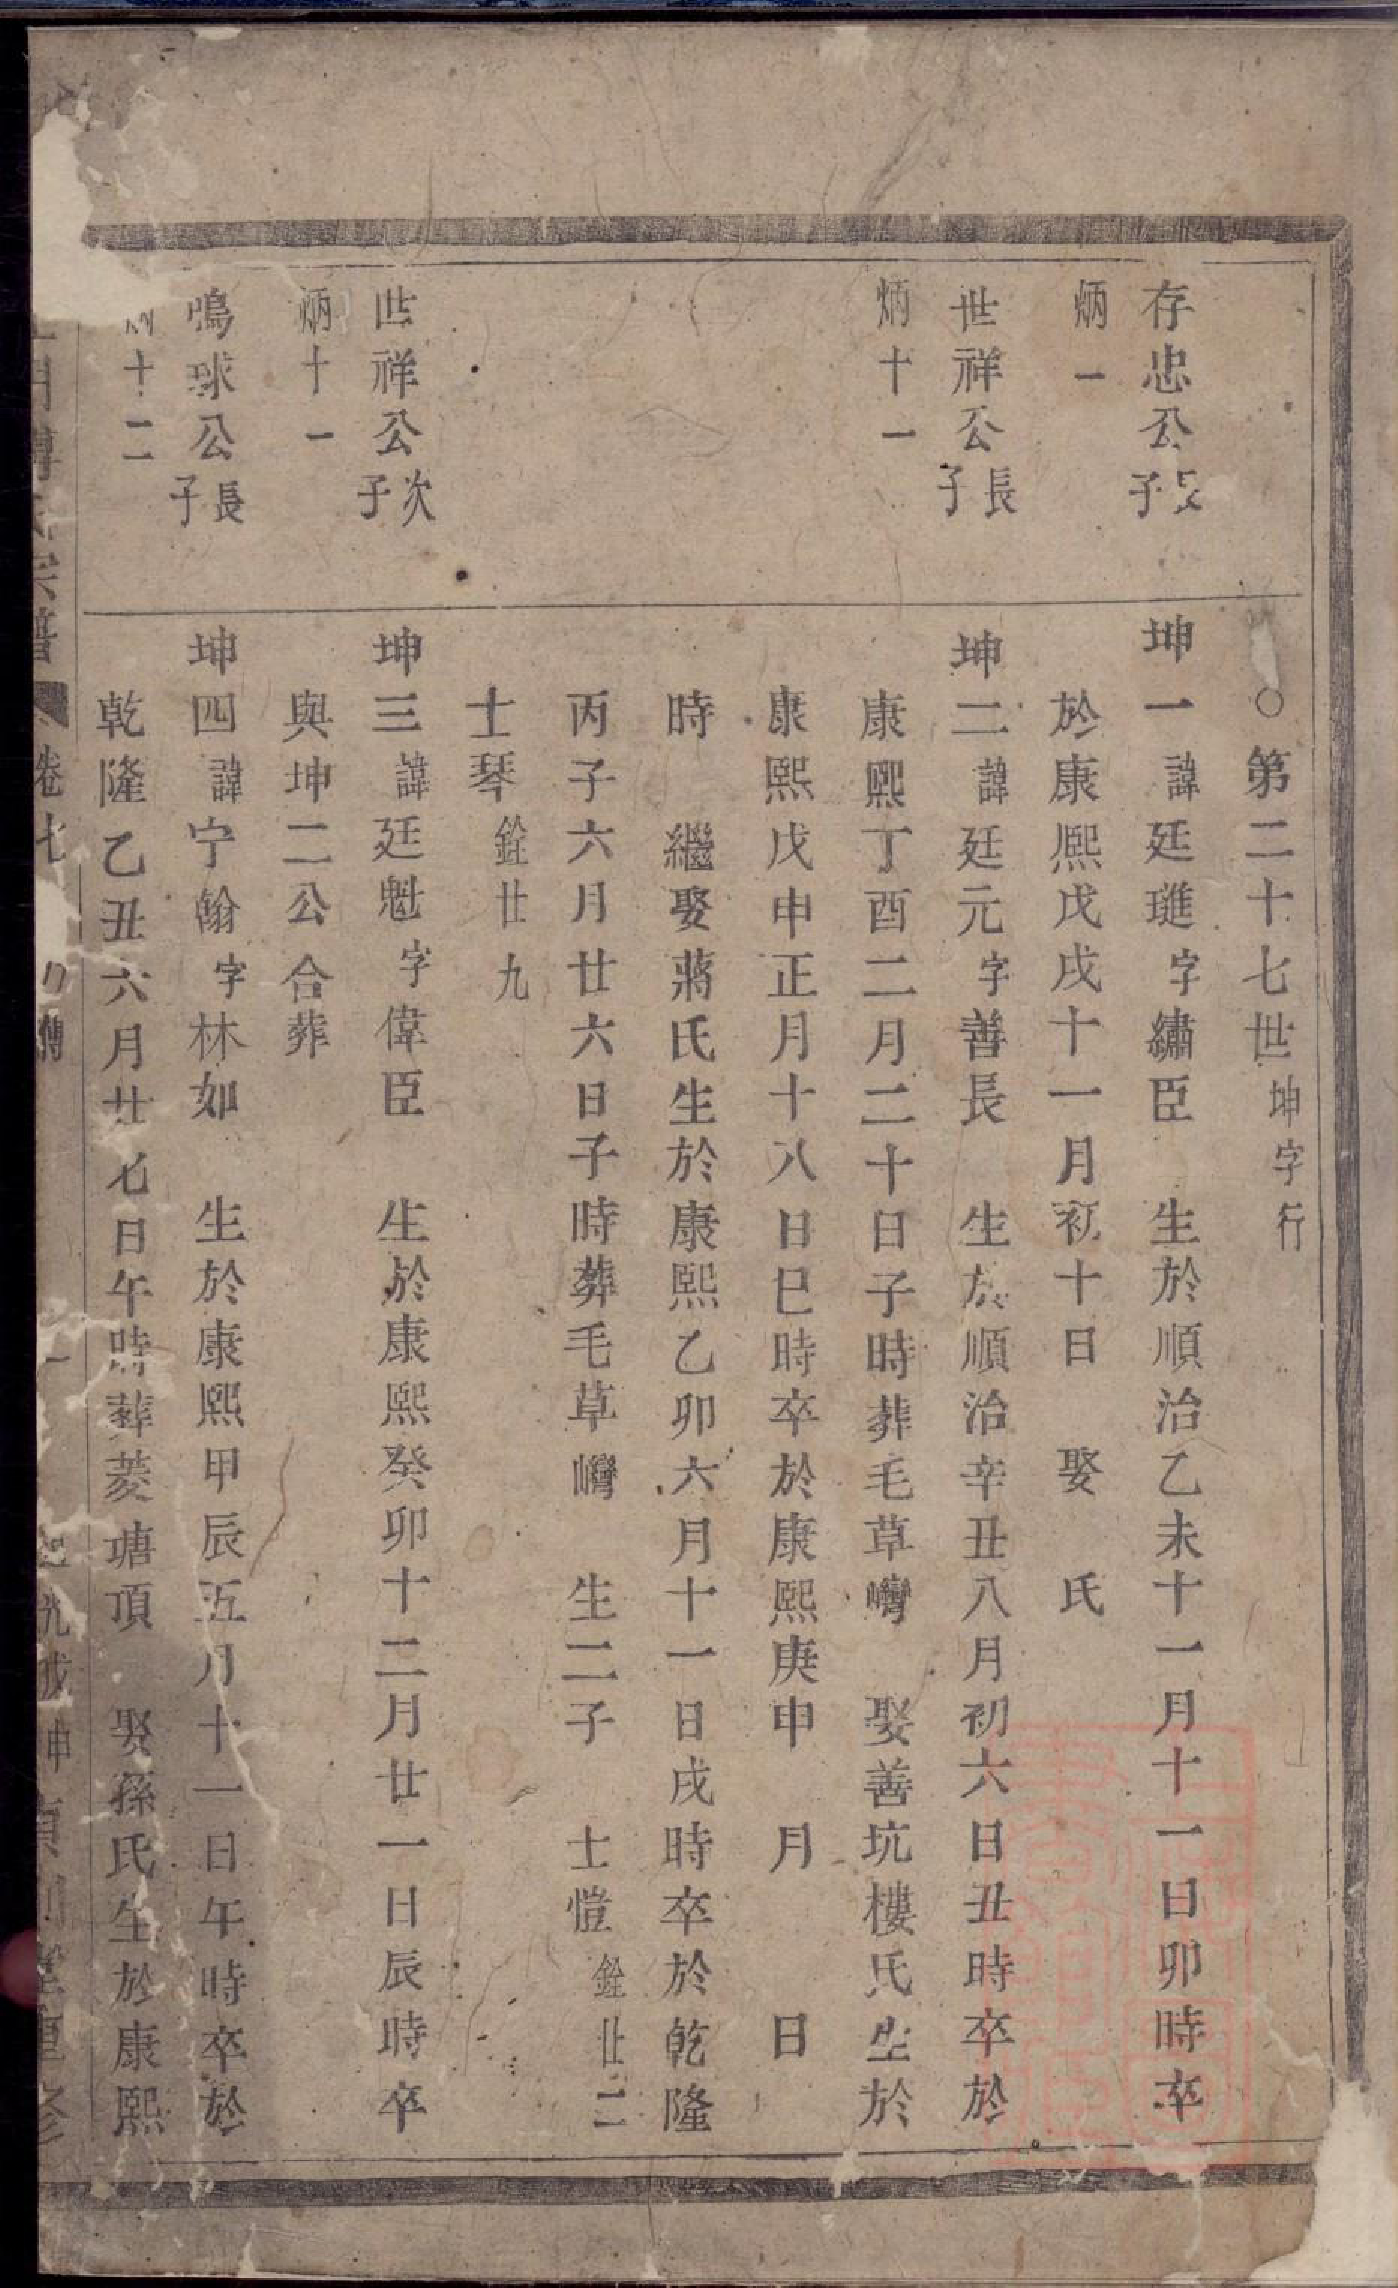 ○第二十七世坤字行
存忠公長子
坤一諱廷璡字繡臣 生於順治乙未十一月十一日卯時卒
炳一
於康熙戊戌十一月初十日 娶 氏
世祥公長子
坤二諱廷元字善長 生於順治辛丑八月初六日丑時卒於
炳十一
康熙丁酉二月二十日子時葬毛草巒 娶善坑樓氏生於
康熙戊申正月十八日巳時卒於康熙庚申 月 日
時 繼娶蔣氏生於康熙乙卯六月十一日戌時卒於乾隆
丙子六月廿六日子時葬毛草巒 生二子 士愷銓廿二
士琴銓廿九
世祥公次子
坤三諱廷魁字偉臣 生於康熙癸卯十二月廿一日辰時卒
炳十一
與坤二公合葬
鳴球公長子
坤四諱宁翰字林如 生於康熙甲辰五月十一日午時卒於
炳十二
乾隆乙丑六月廿七日午時葬菱塘頂 娶孫氏生於康熙
宗譜 卷七 傳 坤 重修